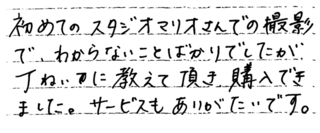 初めてのスタジオマリオさんでの撮影
で、わからないことばかりでしたが
丁ねいに教えて頂き購入でき
ました。サービスもありがたいです。